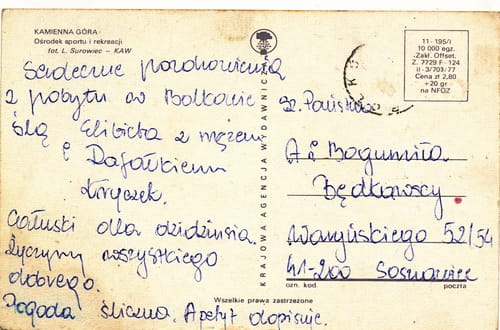 KAMIENNA GÓRA
Ośrodek sportu i rekreacji
fot. L. Surowiec – KAW
Serdeczne pozdrowienia
z pobytu w Bolkowie
ślą Elżbieta z mężem
i Rafałkiem
Całuski dla dzidziusia.
Życzymy wszystkiego
dobrego.
Pogoda śliczna. Apetyt dopisuje.
KRAJOWA AGENCJA WYDAWNICZA
11-195/I
10 000 egz.
Zakł. Offset.
Z. 7729 F-124
II-3/703/77
Cena zł 2,80
+20 gr
na NFOZ
Sz. Państwo
A i Bogumiła
Będkowscy
Waryńskiego 52/54
41-200 Sosnowiec
ozn. kod
poczta
Wszelkie prawa zastrzeżone